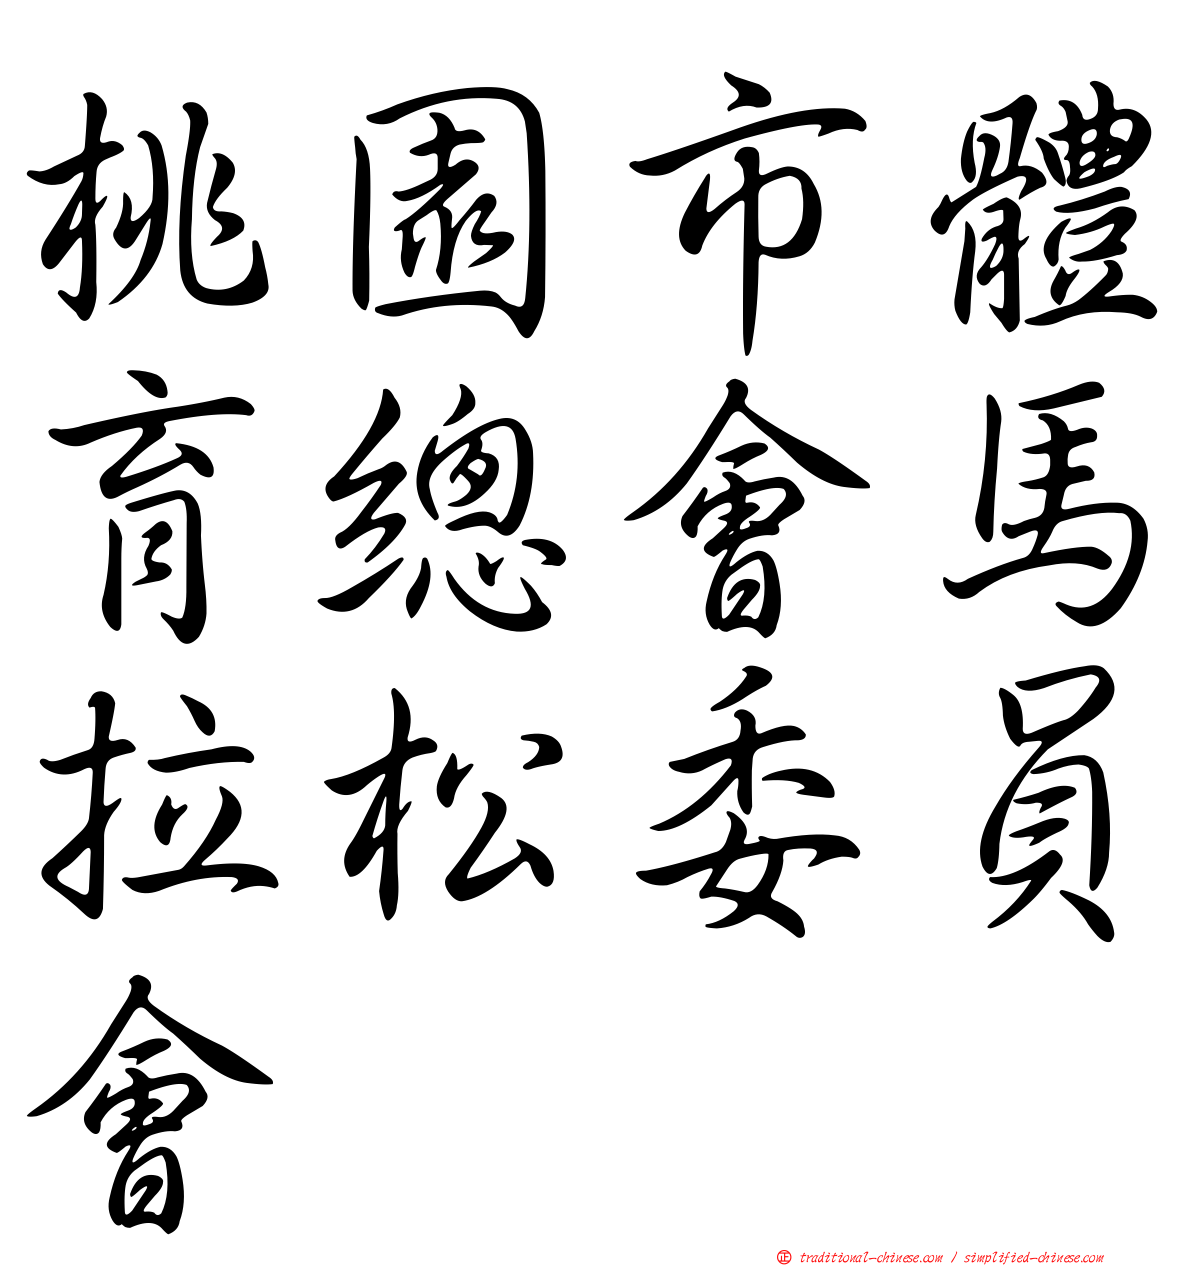 桃園市體
育總會馬
拉松委員
會
正 traditional-chinese.com / simplified-chinese.com